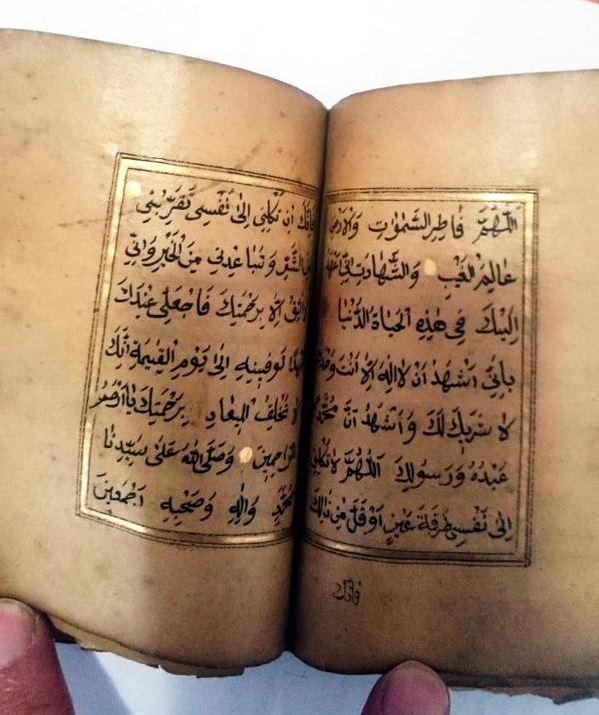 اللهم فاطر السموات والارض
عالم الغيب والشهادت انى اعهد
اليك فى هذه الحياة الدنيا
بانى اشهد ان لا اله الا انت وحدك
لا شريك لك واشهد ان محمدا
عبده ورسولك اللهم لا تكلنى
الى نفسى طرفة عين او قل من ذالك
فانك
فانك ان تكلنى الى نفسى تقربنى
من الشر وتباعدنى من الخير وانى
لا اثق الا برحمتك فاجعلى عندك
عهدا توفينه الى يوم القيمة انك
لا تخلف الميعاد برحمتك يا ارحم
الراحمين وصلى الله على سيدنا
محمد واله وصحبه اجمعين